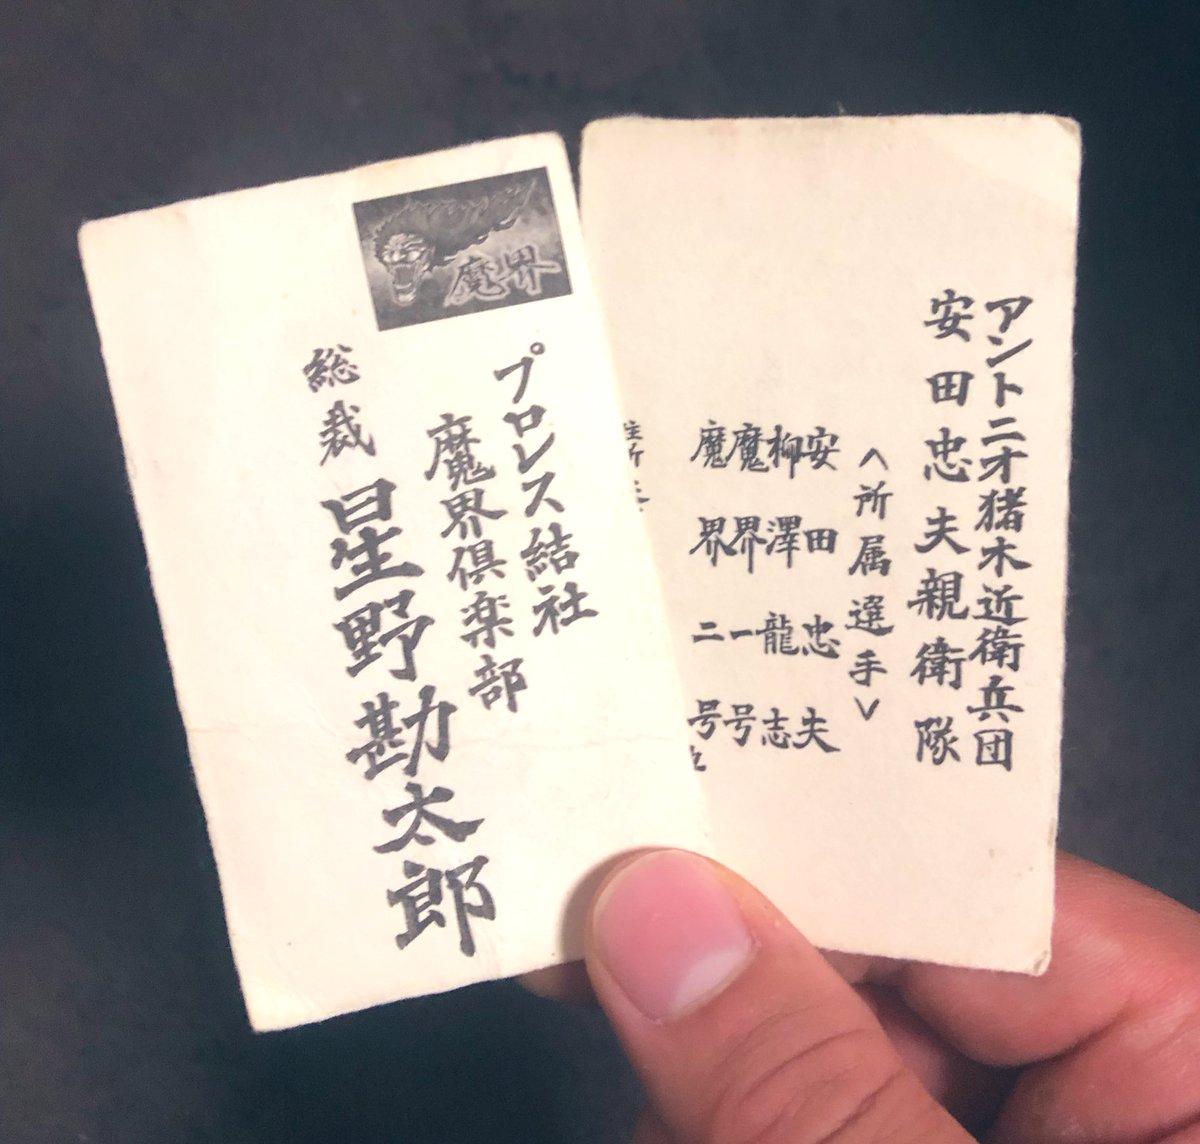 魔界
プロレス結社
魔界倶楽部
総裁 星野勘太郎
アントニオ猪木近衛兵団
安田忠夫親衛隊
<所属選手>
安田忠夫
柳澤龍志
魔界一号
魔界二号